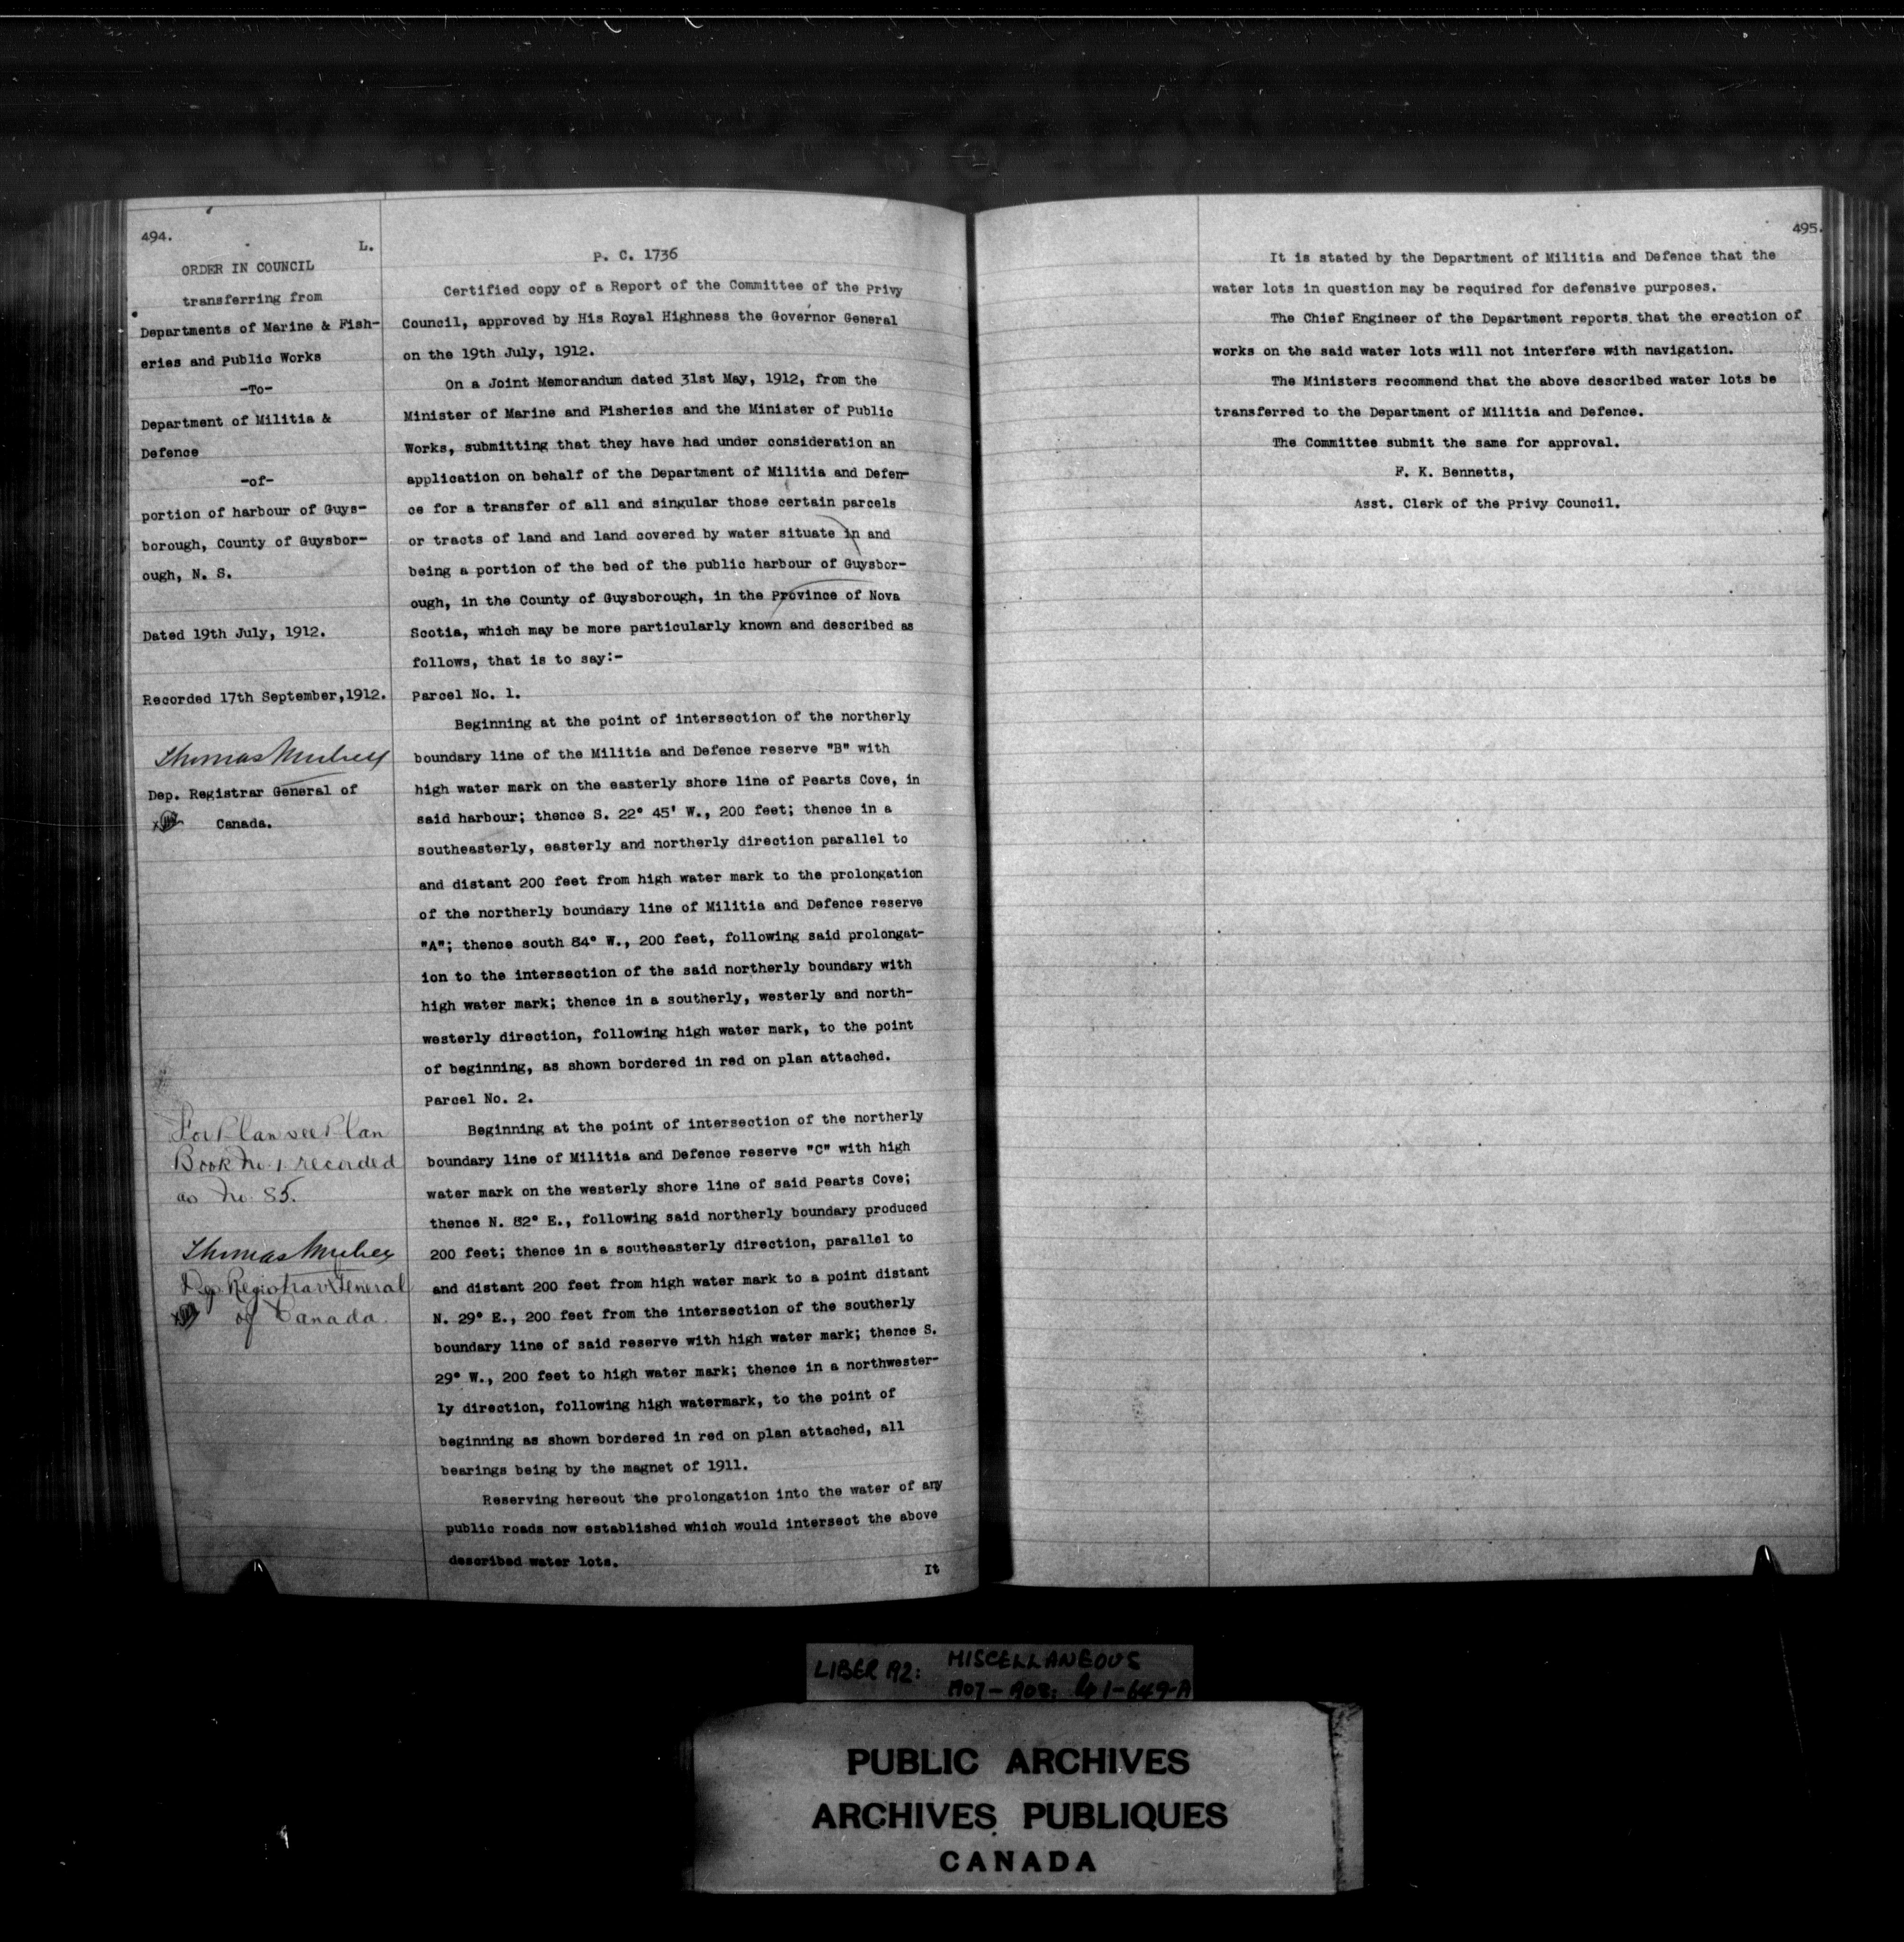 494.
L.
ORDER IN COUNCIL
transferring from
Departments of Marine & Fish-
eries and Public Works
-To-
Department of Militia &
Defence
-of-
portion of harbour of Guys-
borough, County of Guysbor-
ough, N. S.
Dated 19th July, 1912.
Recorded 17th September,1912.
Thomas
Dep. Registrar General of
Canada.
For Plan see Plan
Book No. 1 recorded
as No. 85.
Thomas
Dep Registrar General
of Canada.
P. C. 1736
Certified copy of a Report of the Committee of the Privy
Council, approved by His Royal Highness the Governor General
on the 19th July, 1912.
On a Joint Memorandum dated 31st May, 1912, from the
Minister of Marine and Fisheries and the Minister of Public
Works, submitting that they have had under consideration an
application on behalf of the Department of Militia and Defen-
ce for a transfer of all and singular those certain parcels
or tracts of land and land covered by water situate in and
being a portion of the bed of the public harbour of Guysbor-
ough, in the County of Guysborough, in the Province of Nova
Scotia, which may be more particularly known and described as
follows, that is to say:-
Parcel No. 1.
Beginning at the point of intersection of the northerly
boundary line of the Militia and Defence reserve "B" with
high water mark on the easterly shore line of Pearts Cove, in
said harbour; thence S. 22° 45' W., 200 feet; thence in a
southeasterly, easterly and northerly direction parallel to
and distant 200 feet from high water mark to the prolongation
of the northerly boundary line of Militia and Defence reserve
"A"; thence south 84° W., 200 feet, following said prolongat-
ion to the intersection of the said northerly boundary with
high water mark; thence in a southerly, westerly and north-
westerly direction, following high water mark, to the point
of beginning, as shown bordered in red on plan attached.
Parcel No. 2.
Beginning at the point of intersection of the northerly
boundary line of Militia and Defence reserve "C" with high
water mark on the westerly shore line of said Pearts Cove;
thence N. 82° E., following said northerly boundary produced
200 feet; thence in a southeasterly direction, parallel to
and distant 200 feet from high water mark to a point distant
N. 29° E., 200 feet from the intersection of the southerly
boundary line of said reserve with high water mark; thence S.
29° W., 200 feet to high water mark; thence in a northwester-
ly direction, following high watermark, to the point of
beginning as shown bordered in red on plan attached, all
bearings being by the magnet of 1911.
Reserving hereout the prolongation into the water of any
public roads now established which would intersect the above
described water lots.
It
495.
It is stated by the Department of Militia and Defence that the
water lots in question may be required for defensive purposes.
The Chief Engineer of the Department reports that the erection of
works on the said water lots will not interfere with navigation.
The Ministers recommend that the above described water lots be
transferred to the Department of Militia and Defence.
The Committee submit the same for approval.
F. K. Bennetts,
Asst. Clerk of the Privy Council.
LIBER 192: MISCELLANEOUS
PUBLIC ARCHIVES
ARCHIVES PUBLIQUES
CANADA